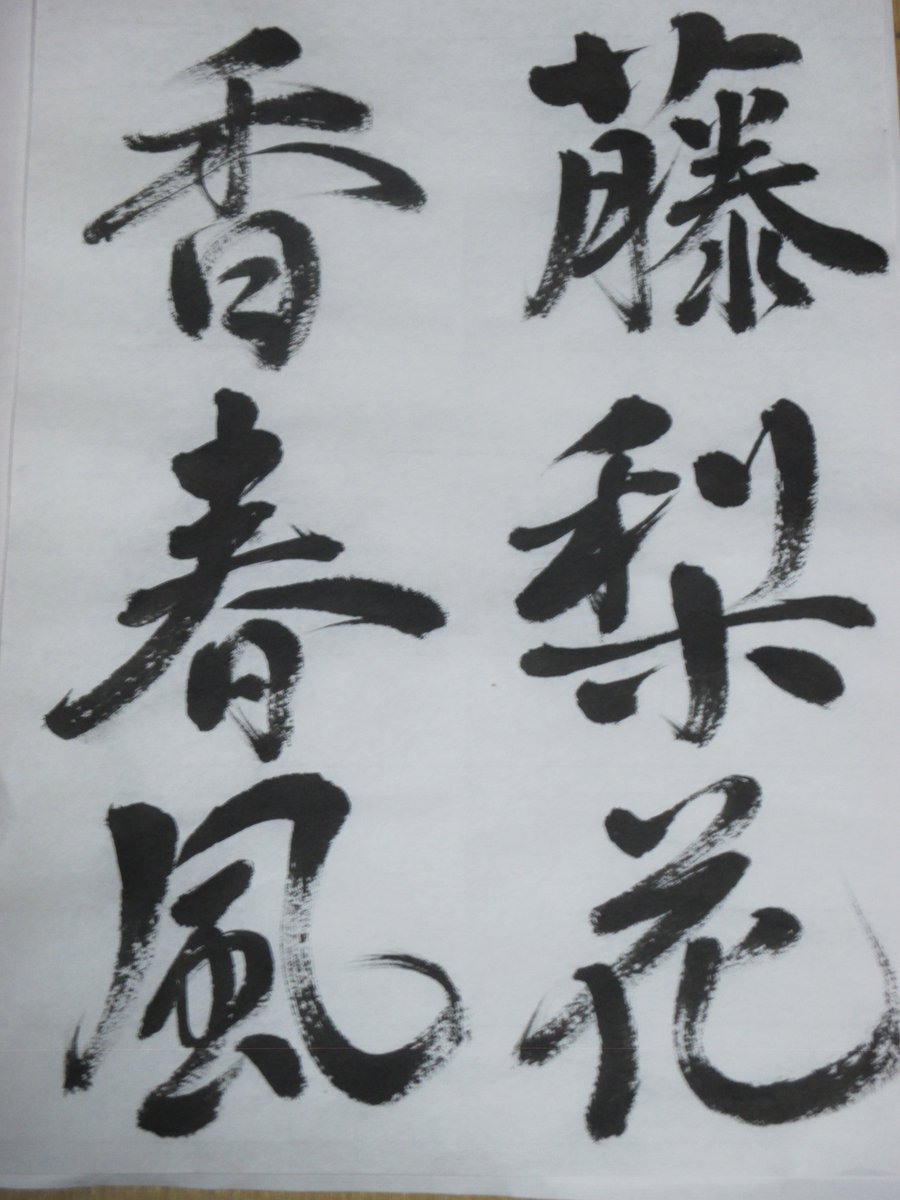 藤梨花
香春風